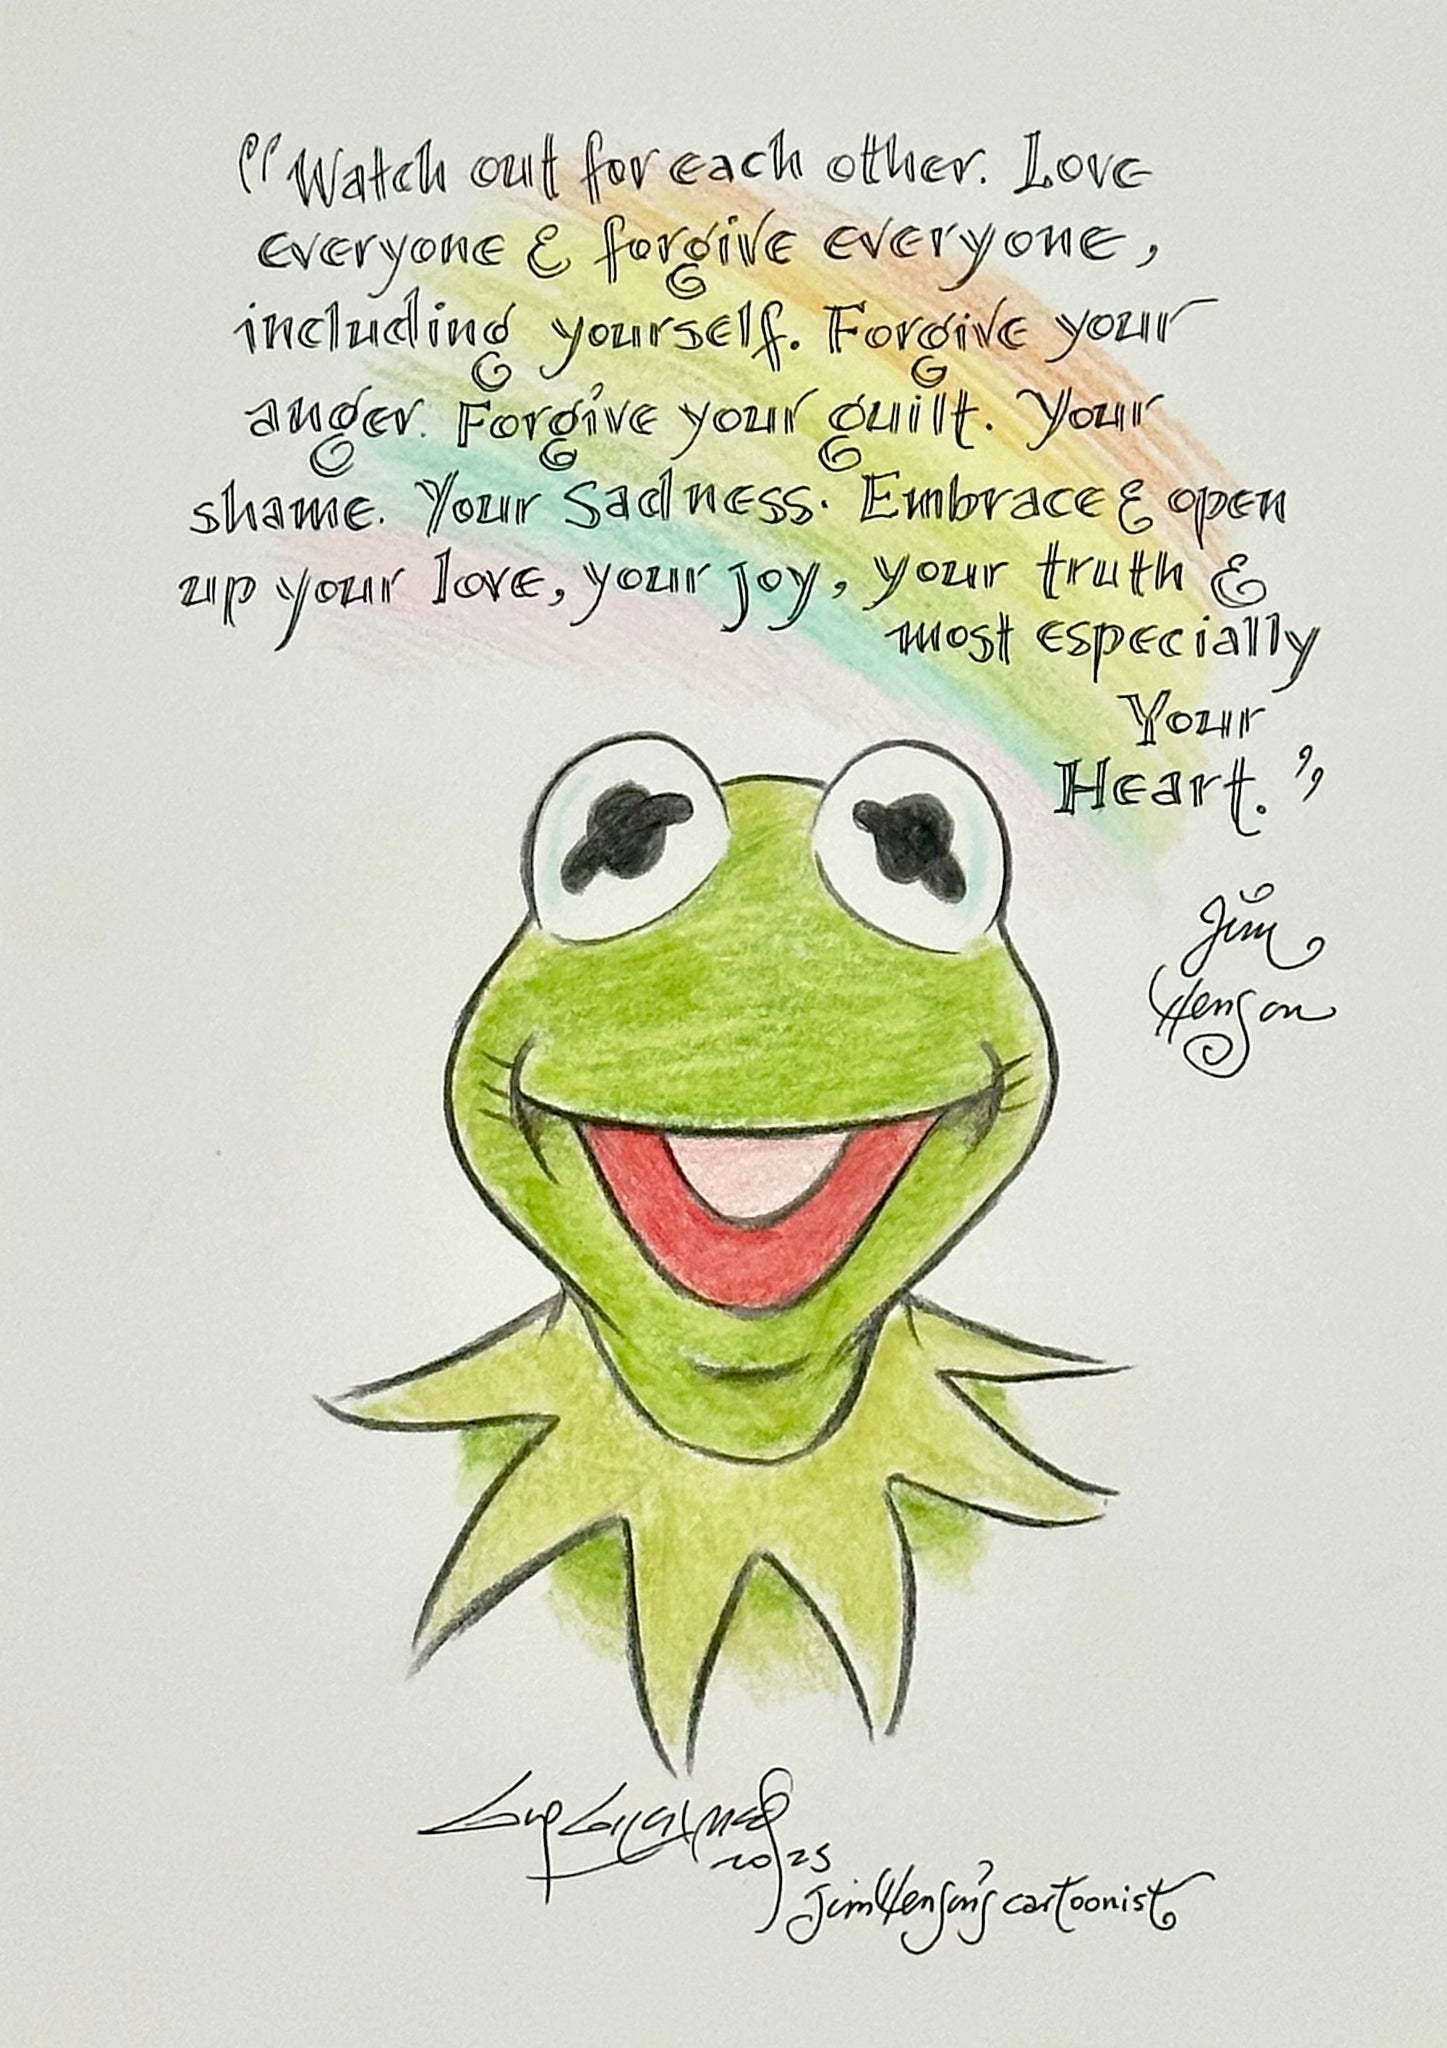 "Watch out for each other. Love
everyone & forgive everyone,
including yourself. Forgive your
anger. Forgive your guilt. Your
shame. Your Sadness. Embrace & open
up your love, your joy, your truth &
most especially
Your
Heart."
Jim
Henson
Guy Gilchrist
2025
Jim Henson's cartoonist